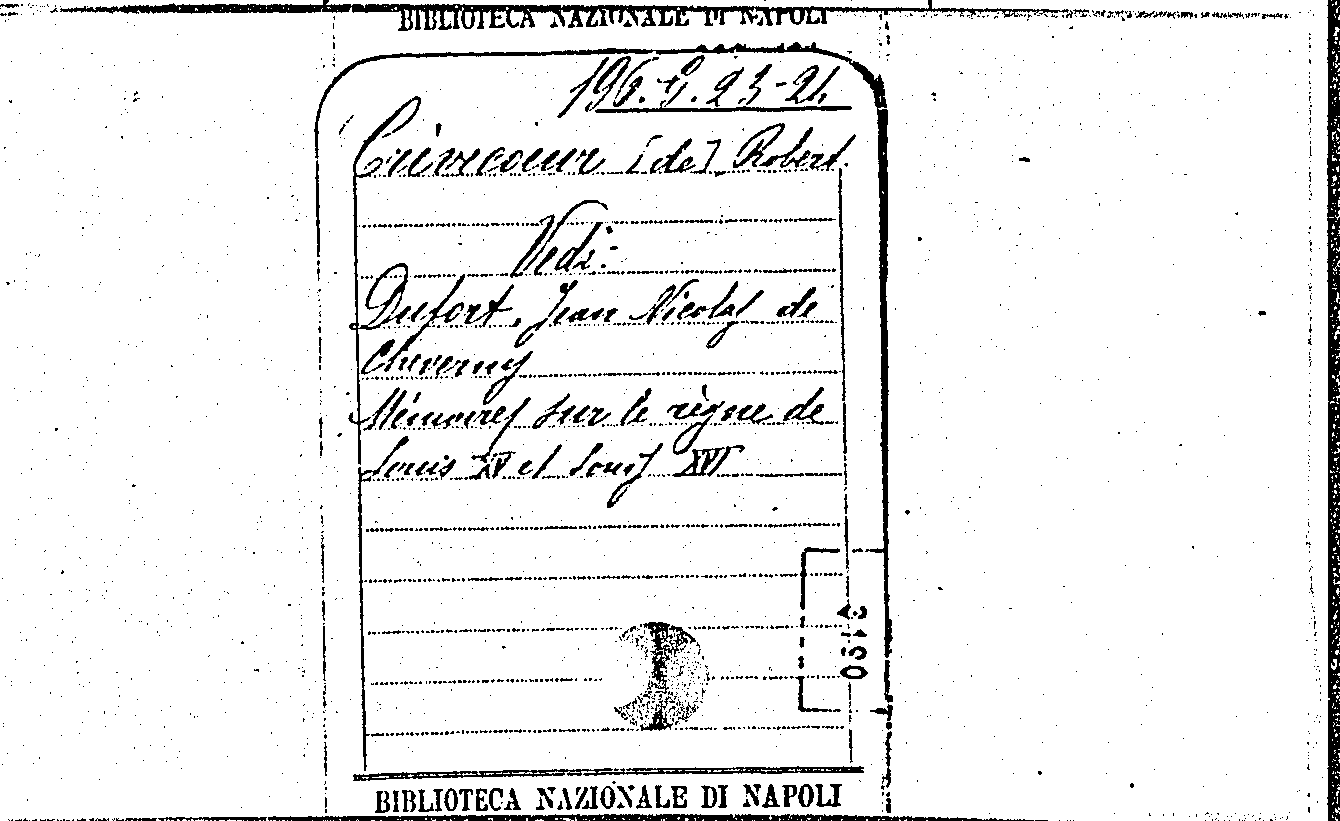 BIBLIOTECA NAZIONALE DI NAPOLI
196.G.23-24.
Crèvecoeur [de] Robert.
Vedi:
Dufort, Jean Nicolas de
Cheverny
Mémoires sur le règne de
Louis XV et Louis XVI
BIBLIOTECA NAZIONALE DI NAPOLI